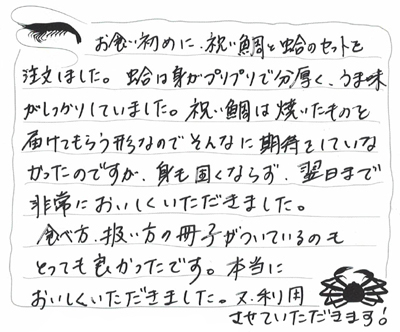 お食い初めに、祝い鯛と蛤のセットを
注文しました。蛤は身がプリプリで分厚く、うま味
がしっかりしていました。祝い鯛は焼いたものを
届けてもらう形なのでそんなに期待をしていな
かったのですが、身も固くならず、翌日まで
非常においしくいただきました。
食べ方、扱い方の冊子がついているのも
とっても良かったです。本当に
おいしくいただきました。又、利用
させていただきます!